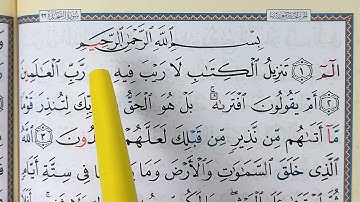 بِسْمِ ٱللَّهِ ٱلرَّحْمَٰنِ ٱلرَّحِيمِ
الٓمٓ ١ تَنزِيلُ ٱلْكِتَٰبِ لَا رَيْبَ فِيهِ رَّبِّ ٱلْعَٰلَمِينَ
٢ أَمْ يَقُولُونَ ٱفْتَرَىٰهُ ۚ بَلْ هُوَ ٱلْحَقُّ لِتُنذِرَ قَوْمًا
مَّآ أَتَىٰهُم مِّن نَّذِيرٍ مِّن قَبْلِكَ لَعَلَّهُمْ ٣ ٱللَّهُ
ٱلَّذِى خَلَقَ ٱلسَّمَٰوَٰتِ وَٱلْأَرْضَ وَمَا فِى سِتَّةِ أَيَّامٍ